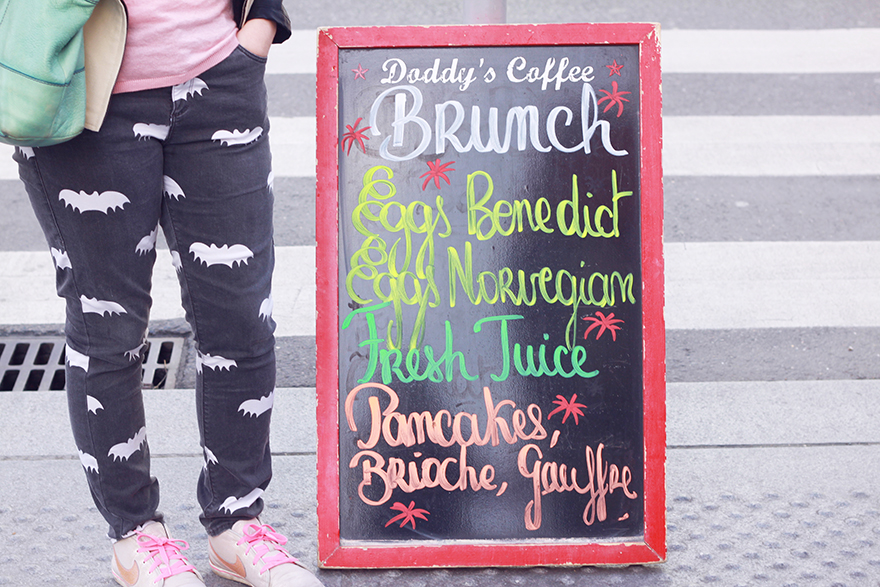 Doddy's Coffee
Brunch
Eggs Benedict
Eggs Norvegian
Fresh Juice
Pancakes,
Brioche, Gauffre.